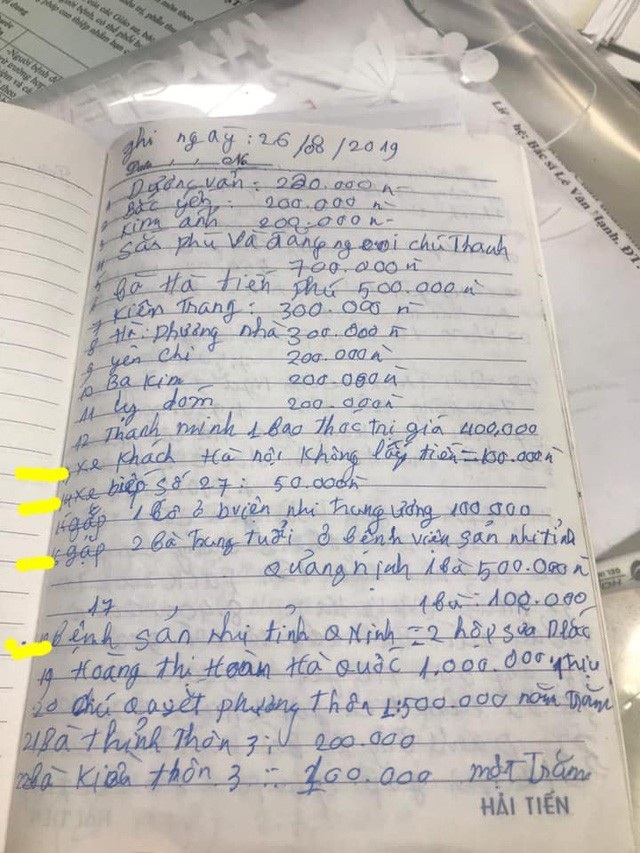 ghi ngày: 26/08/2019
Date No
1 Dương Vân: 220.000 n
2 Bác yến: 200.000 n
3 Kim ánh 200.000 n
4 Sản phụ và đẳng người chú Thanh
5 700.000 n
6 Bà Hà tiến Phú 500.000 n
7 Kiên Trang: 300.000 n
8 Hà: phương nha 300.000 n
9 yến chi 200.000 n
10 Ba Kim 200.000 n
11 ly dóm 200.000 n
12 Thanh minh 1 bao thóc trị giá 400,000
xe khách Hà nội không lấy tiền = 100.000 n
14 xe biển số 27: 50.000 n
15 gặp 1 bà ở bviện nhi trung ương 100.000
gặp 2 Bà Trung tuổi ở bệnh viện sản nhi tỉnh
Quảng ninh 1 bà 500.000 n
17 , , 1 bà: 100.000
Bệnh sản nhi tỉnh Q Ninh = 2 hộp sữa
19 Hoang thị Hoàn Hà Quốc 1.000.000.
20 chú Quyết phương Thôn 1: 500.000 năm trăm
21 Bà thịnh Thôn 3: 200.000
22 Bà thôn 3 : 100.000 một Trăm
HẢI TIẾN
Bác sĩ Lê Văn Hạnh, ĐT